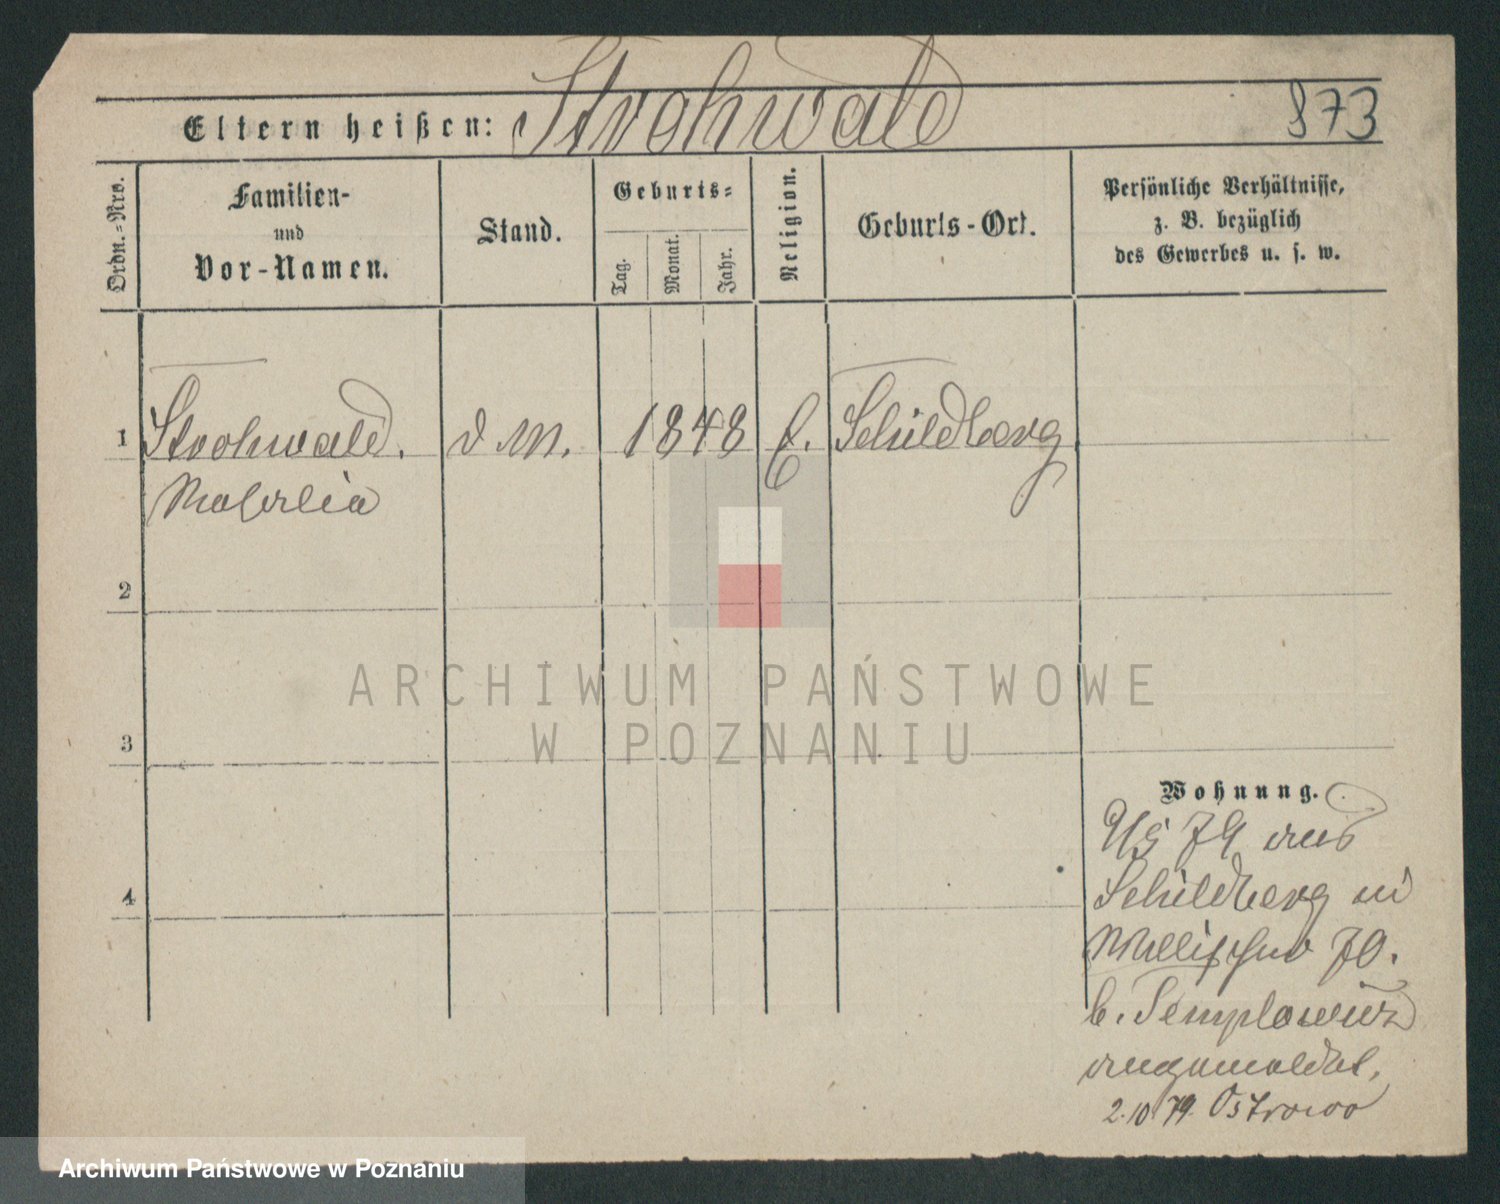 Eltern heißen: Strohwald
873
Ordn.=Nro.
Familien-
und
Vor-Namen.
Stand.
Geburts=
Tag.
Monat.
Jahr.
Religion.
Geburts-Ort.
Persönliche Verhältnisse,
z. B. bezüglich
des Gewerbes u. s. w.
1
Strohwald.
d M.
1848
Schildberg.
2
ARCHIWUM PAŃSTWOWE
W POZNANIU
3
Wohnung.
79 aus
Schildberg in
70.
b.
angemeldet,
2.10.79. Ostrowo
4
Archiwum Państwowe w Poznaniu